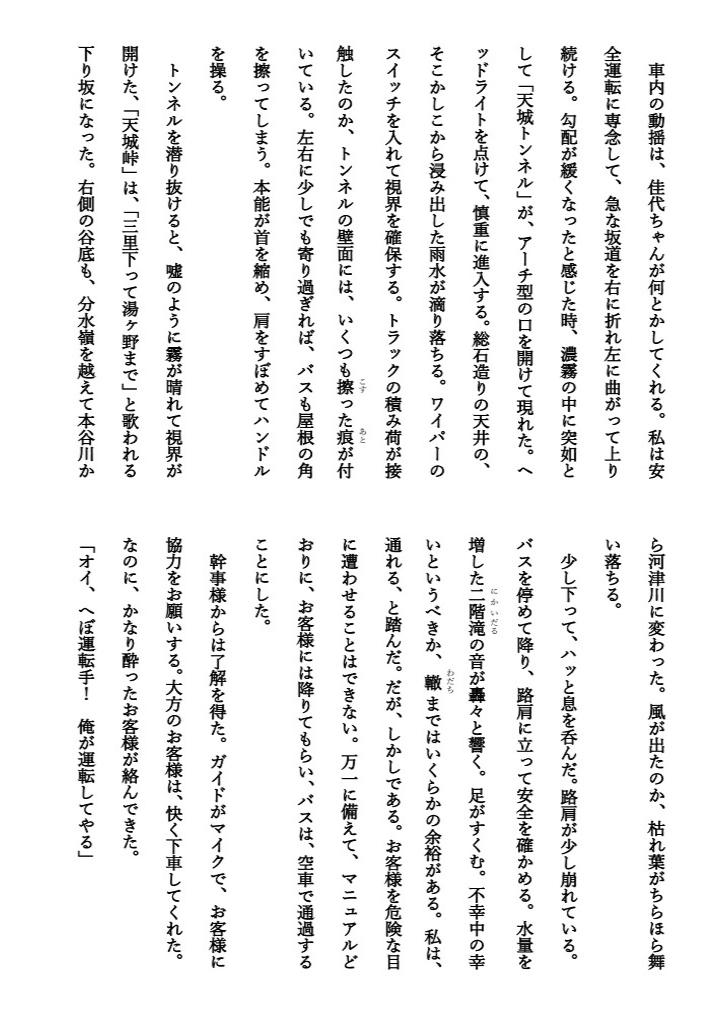 車内の動揺は、佳代ちゃんが何とかしてくれる。私は安
全運転に専念して、急な坂道を右に折れ左に曲がって上り
続ける。勾配が緩くなったと感じた時、濃霧の中に突如と
して「天城トンネル」が、アーチ型の口を開けて現れた。ヘ
ッドライトを点けて、慎重に進入する。総石造りの天井の、
そこかしこから浸み出した雨水が滴り落ちる。ワイパーの
スイッチを入れて視界を確保する。トラックの積み荷が接
触したのか、トンネルの壁面には、いくつも擦った痕が付
こす
あと
いている。左右に少しでも寄り過ぎれば、バスも屋根の角
を擦ってしまう。本能が首を縮め、肩をすぼめてハンドル
を操る。
　トンネルを潜り抜けると、嘘のように霧が晴れて視界が
開けた、「天城峠」は、「三里下って湯ヶ野まで」と歌われる
下り坂になった。右側の谷底も、分水嶺を越えて本谷川か
ら河津川に変わった。風が出たのか、枯れ葉がちらほら舞
い落ちる。
　少し下って、ハッと息を呑んだ。路肩が少し崩れている。
バスを停めて降り、路肩に立って安全を確かめる。水量を
増した二階滝の音が轟々と響く。足がすくむ。不幸中の幸
にかいだる
いというべきか、轍まではいくらかの余裕がある。私は、
わだち
通れる、と踏んだ。だが、しかしである。お客様を危険な目
に遭わせることはできない。万一に備えて、マニュアルど
おりに、お客様には降りてもらい、バスは、空車で通過する
ことにした。
　幹事様からは了解を得た。ガイドがマイクで、お客様に
協力をお願いする。大方のお客様は、快く下車してくれた。
なのに、かなり酔ったお客様が絡んできた。
「オイ、へぼ運転手！　俺が運転してやる」